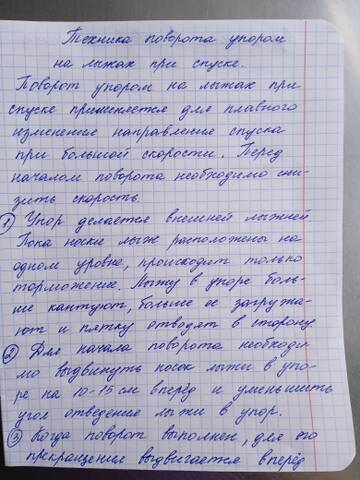 Техника поворота упором
на лыжах при спуске.
Поворот упором на лыжах при
спуске применяется для плавного
изменение направления спуска
при большой скорости. Перед
началом поворота необходимо сни-
зить скорость.
① Упор делается внешней лыжней.
Пока носки лыж расположены на
одном уровне, происходит только
торможение. Лыжу в упоре боль-
ше кантуют, больше ее загружа-
ют и пятку отводят в сторону.
② Для начала поворота необходи-
мо выдвинуть носок лыжи в упо-
ре на 10-15 см вперёд и уменьшить
угол отведение лыжи в упор.
③ Когда поворот выполнен, для его
прекращения выдвигается вперёд